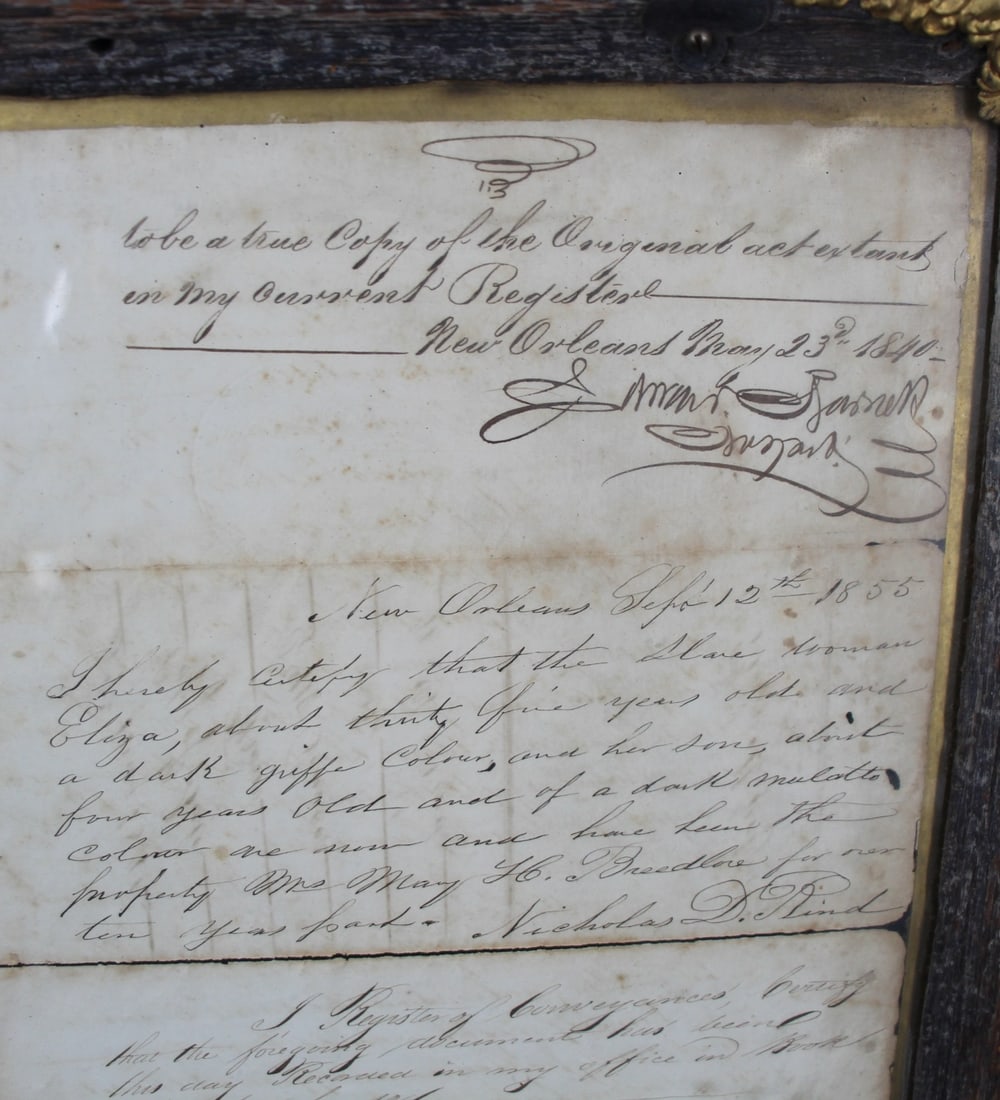 to be a true Copy of the Original act extant
in my current Register
New Orleans May 23d 1840
Edward Barnett
Not. Pub.
New Orleans Sept 12th 1855
I hereby certify that the slave woman
Eliza, about thirty five years old and
a dark griffe colour, and her son, about
four years old and of a dark mulatto
colour are now and have been the
property Mrs Mary H. Breedlove for over
ten years past. Nicholas D. Rind
I Register of Conveyances, Certify
that the foregoing document has been
this day Recorded in my office in Book